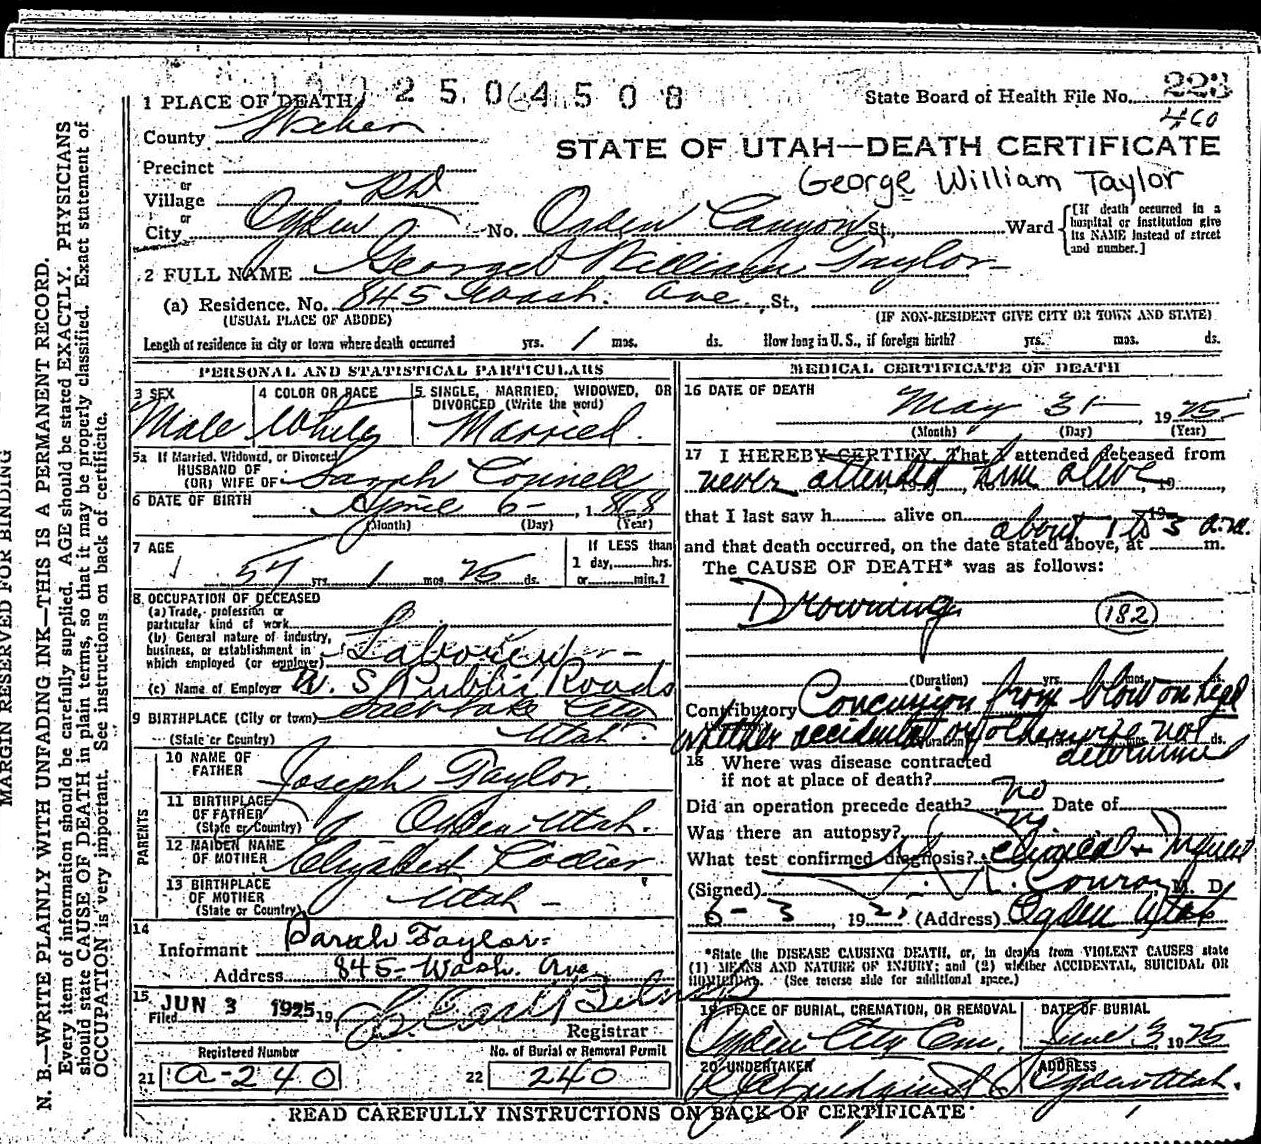 2 5 0 4 5 0 8
223
1 PLACE OF DEATH
State Board of Health File No.
460
County Weber
STATE OF UTAH—DEATH CERTIFICATE
Precinct
George William Taylor
or
Village Rhd
or
City Ogden No. Ogden Canyon St., Ward
[If death occurred in a hospital or institution give its NAME instead of street and number.]
2 FULL NAME George William Taylor
(a) Residence. No. 845 Wash. Ave. St.,
(USUAL PLACE OF ABODE)
(IF NON-RESIDENT GIVE CITY OR TOWN AND STATE)
Length of residence in city or town where death occurred yrs. 1 mos. ds. How long in U. S., if foreign birth? yrs. mos. ds.
PERSONAL AND STATISTICAL PARTICULARS
3 SEX
Male
4 COLOR OR RACE
White
5 SINGLE, MARRIED, WIDOWED, OR DIVORCED (Write the word)
Married
5a If Married, Widowed, or Divorced
HUSBAND OF
(OR) WIFE OF Sarah Connell
6 DATE OF BIRTH April 6 - 1868
(Month) (Day) (Year)
7 AGE
57 yrs. 1 mos. 25 ds.
If LESS than
1 day, hrs.
or min.?
8 OCCUPATION OF DECEASED
(a) Trade, profession or
particular kind of work
(b) General nature of industry,
business, or establishment in
which employed (or employer) Laborer
(c) Name of Employer U. S. Public Roads
9 BIRTHPLACE (City or town) Salt Lake City
(State or Country) Utah
PARENTS
10 NAME OF
FATHER Joseph Taylor
11 BIRTHPLACE
OF FATHER
(State or Country) Ogden Utah.
12 MAIDEN NAME
OF MOTHER Elizabeth
13 BIRTHPLACE
OF MOTHER
(State or Country) Utah -
14
Informant Sarah Taylor
Address 845 - Wash. Ave
15
Filed JUN 3 1925 19
Registrar
Registered Number
21 a-240
No. of Burial or Removal Permit
22 240
MEDICAL CERTIFICATE OF DEATH
16 DATE OF DEATH
May 31 - 1925
(Month) (Day) (Year)
17 I HEREBY CERTIFY, That I attended deceased from
never attended him alive 19
that I last saw h alive on 19
about 1 to 3 a.m.
and that death occurred, on the date stated above, at m.
The CAUSE OF DEATH* was as follows:
Drowning 182
(Duration) yrs. mos. ds.
Contributory Concussion from blow on head
whether accidental or otherwise not
(Duration) yrs. mos. ds.
determined
18 Where was disease contracted
if not at place of death?
Did an operation precede death? no Date of
Was there an autopsy? no
What test confirmed diagnosis? Clinical + Inquest
(Signed) Conroy, M. D.
6 - 3 19 (Address) Ogden Utah
*State the DISEASE CAUSING DEATH, or, in deaths from VIOLENT CAUSES state
(1) MEANS AND NATURE OF INJURY; and (2) whether ACCIDENTAL, SUICIDAL OR
HOMICIDAL. (See reverse side for additional space.)
19 PLACE OF BURIAL, CREMATION, OR REMOVAL
Ogden City Cem.
DATE OF BURIAL
June 3 1925
20 UNDERTAKER
ADDRESS
Ogden Utah.
READ CAREFULLY INSTRUCTIONS ON BACK OF CERTIFICATE
MARGIN RESERVED FOR BINDING
N. B.—WRITE PLAINLY WITH UNFADING INK—THIS IS A PERMANENT RECORD.
Every item of information should be carefully supplied. AGE should be stated EXACTLY. PHYSICIANS
should state CAUSE OF DEATH in plain terms, so that it may be properly classified. Exact statement of
OCCUPATION is very important. See instructions on back of certificate.